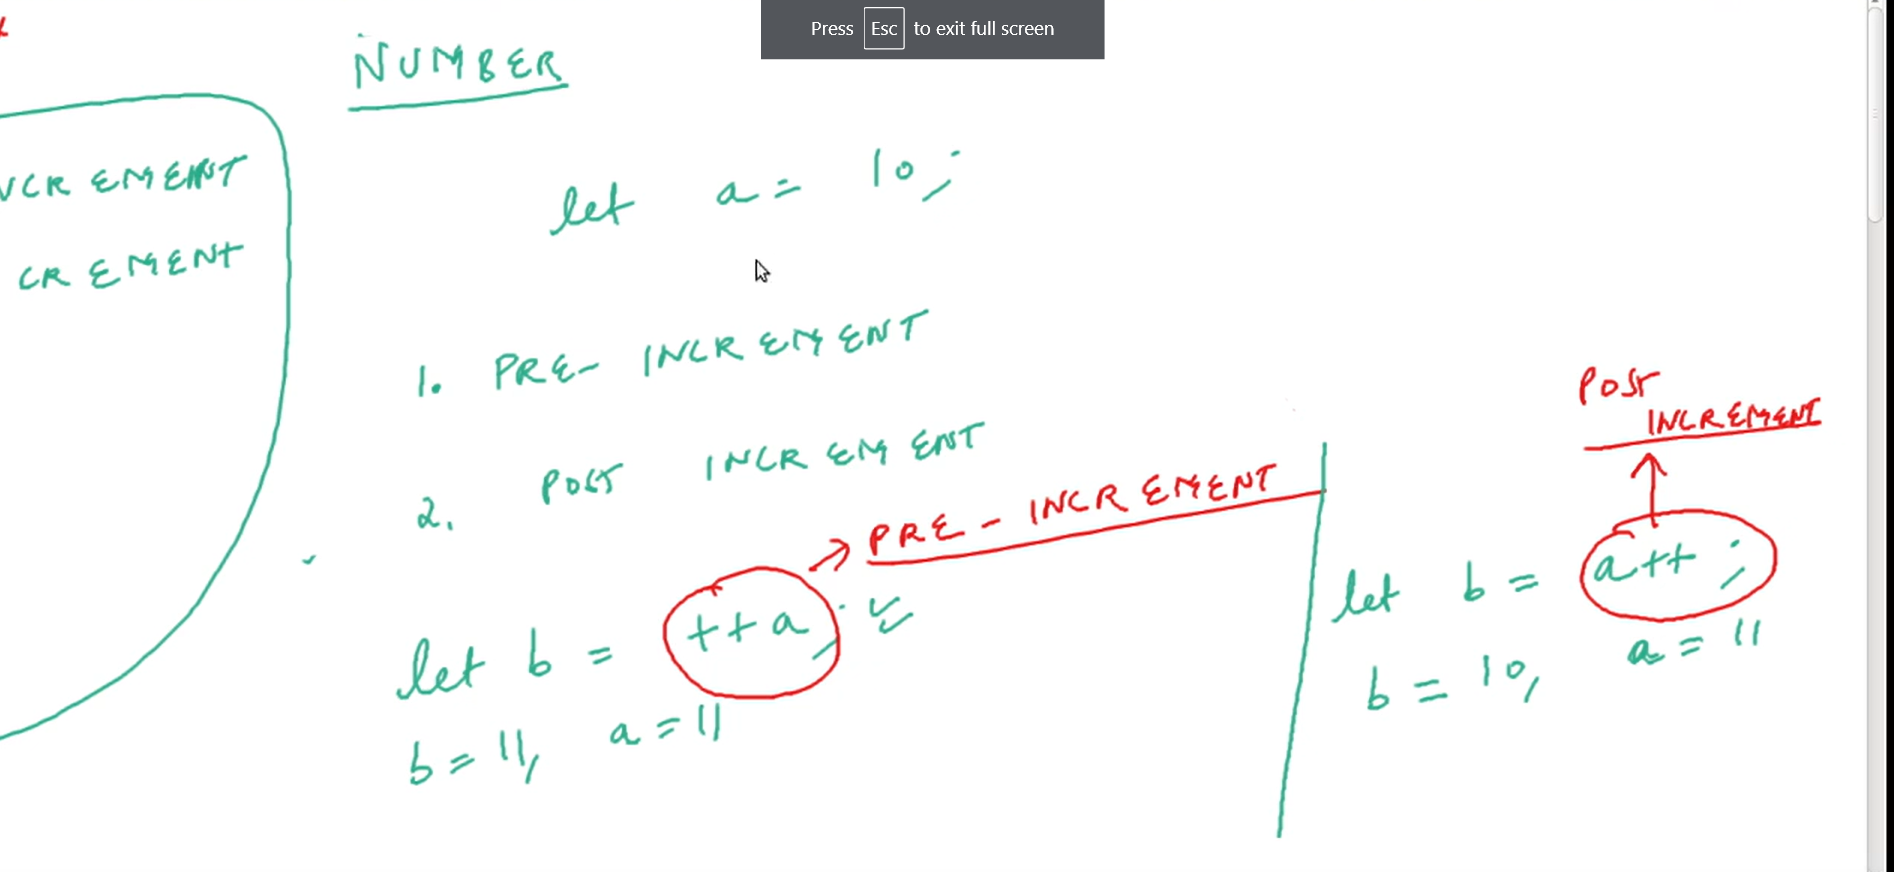 Press Esc to exit full screen
NUMBER
CREMENT
CREMENT
let a = 10;
1. PRE- INCREMENT
2. POST INCREMENT
PRE - INCREMENT
let b = ++a;
b = 11, a = 11
POST
INCREMENT
let b = a++;
b = 10, a = 11